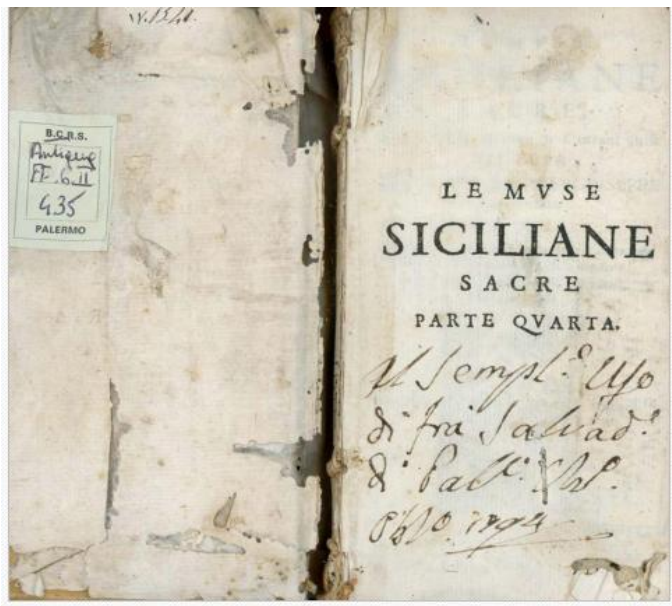 B.C.R.S.
Antiqua
FF. 6. II
435
PALERMO
LE MVSE
SICILIANE
SACRE
PARTE QVARTA.
Al Sempl.ᵉ Uso
di fra Salvad.ᵉ
di Pal